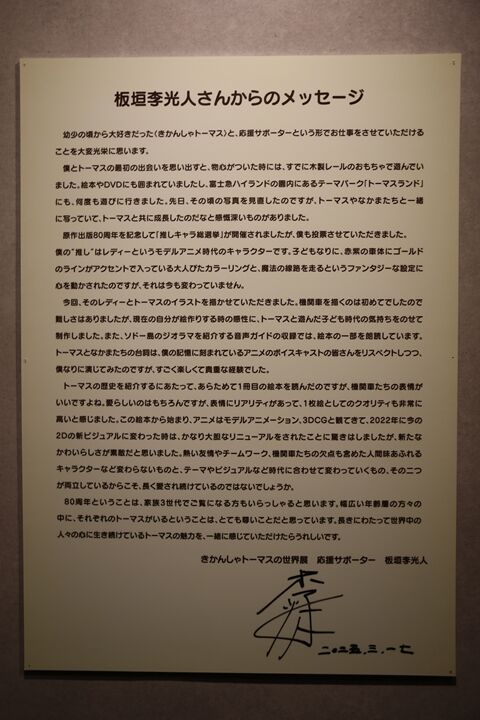 板垣李光人さんからのメッセージ
幼少の頃から大好きだった〈きかんしゃトーマス〉と、応援サポーターという形でお仕事をさせていただける
ことを大変光栄に思います。
僕とトーマスの最初の出会いを思い出すと、物心がついた時には、すでに木製レールのおもちゃで遊んでい
ました。絵本やDVDにも囲まれていましたし、富士急ハイランドの園内にあるテーマパーク「トーマスランド」
にも、何度も遊びに行きました。先日、その頃の写真を見直したのですが、トーマスやなかまたちと一緒
に写っていて、トーマスと共に成長したのだなと感慨深いものがありました。
原作出版80周年を記念して「推しキャラ総選挙」が開催されましたが、僕も投票させていただきました。
僕の“推し”はレディーというモデルアニメ時代のキャラクターです。子どもなりに、赤紫の車体にゴールド
のラインがアクセントで入っている大人びたカラーリングと、魔法の線路を走るというファンタジーな設定に
心を動かされたのですが、それは今も変わっていません。
今回、そのレディーとトーマスのイラストを描かせていただきました。機関車を描くのは初めてでしたので
難しさはありましたが、現在の自分が絵作りする時の感性に、トーマスと遊んだ子ども時代の気持ちをのせて
制作しました。また、ソドー島のジオラマを紹介する音声ガイドの収録では、絵本の一部を朗読しています。
トーマスとなかまたちの台詞は、僕の記憶に刻まれているアニメのボイスキャストの皆さんをリスペクトしつつ、
僕なりに演じてみたのですが、すごく楽しくて貴重な経験でした。
トーマスの歴史を紹介するにあたって、あらためて1冊目の絵本を読んだのですが、機関車たちの表情が
いいですよね。愛らしいのはもちろんですが、表情にリアリティがあって、1枚絵としてのクオリティも非常に
高いと感じました。この絵本から始まり、アニメはモデルアニメーション、3DCGと観てきて、2022年に今の
2Dの新ビジュアルに変わった時は、かなり大胆なリニューアルをされたことに驚きはしましたが、新たな
かわいらしさが素敵だと思いました。熱い友情やチームワーク、機関車たちの欠点も含めた人間味あふれる
キャラクターなど変わらないものと、テーマやビジュアルなど時代に合わせて変わっていくもの、その二つ
が両立しているからこそ、長く愛され続けているのではないでしょうか。
80周年ということは、家族3世代でご覧になる方もいらっしゃると思います。幅広い年齢層の方々の
中に、それぞれのトーマスがいるということは、とても尊いことだと思っています。長きにわたって世界中の
人々の心に生き続けているトーマスの魅力を、一緒に感じていただけたらうれしいです。
きかんしゃトーマスの世界展 応援サポーター 板垣李光人
二〇二五.三.一七